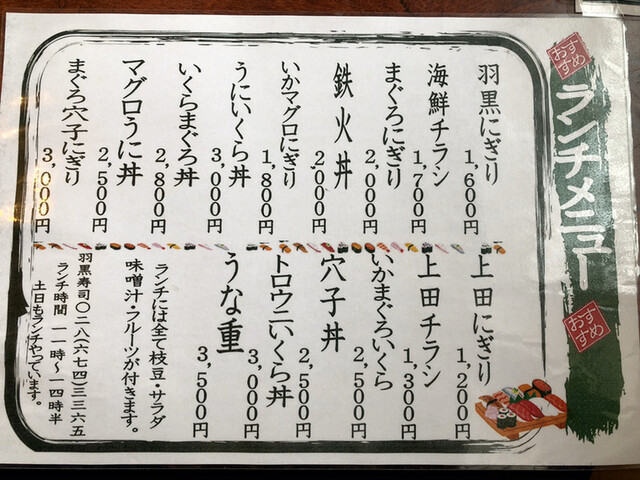 おすすめ
ランチメニュー
おすすめ
羽黒にぎり 1,600円
海鮮チラシ 1,700円
まぐろにぎり 2,000円
鉄火丼 2000円
いかマグロにぎり 1,800円
うにいくら丼 3,000円
いくらまぐろ丼 2,800円
マグロうに丼 2,500円
まぐろ穴子にぎり 3,000円
上田にぎり 1,200円
上田チラシ 1,300円
いかまぐろいくら 2,500円
穴子丼 2,500円
トロウニいくら丼 3,000円
うな重 3,500円
ランチには全て枝豆・サラダ
味噌汁・フルーツが付きます。
羽黒寿司〇二八(六七四)三三六五
ランチ時間 一一時~一四時半
土日もランチやっています。